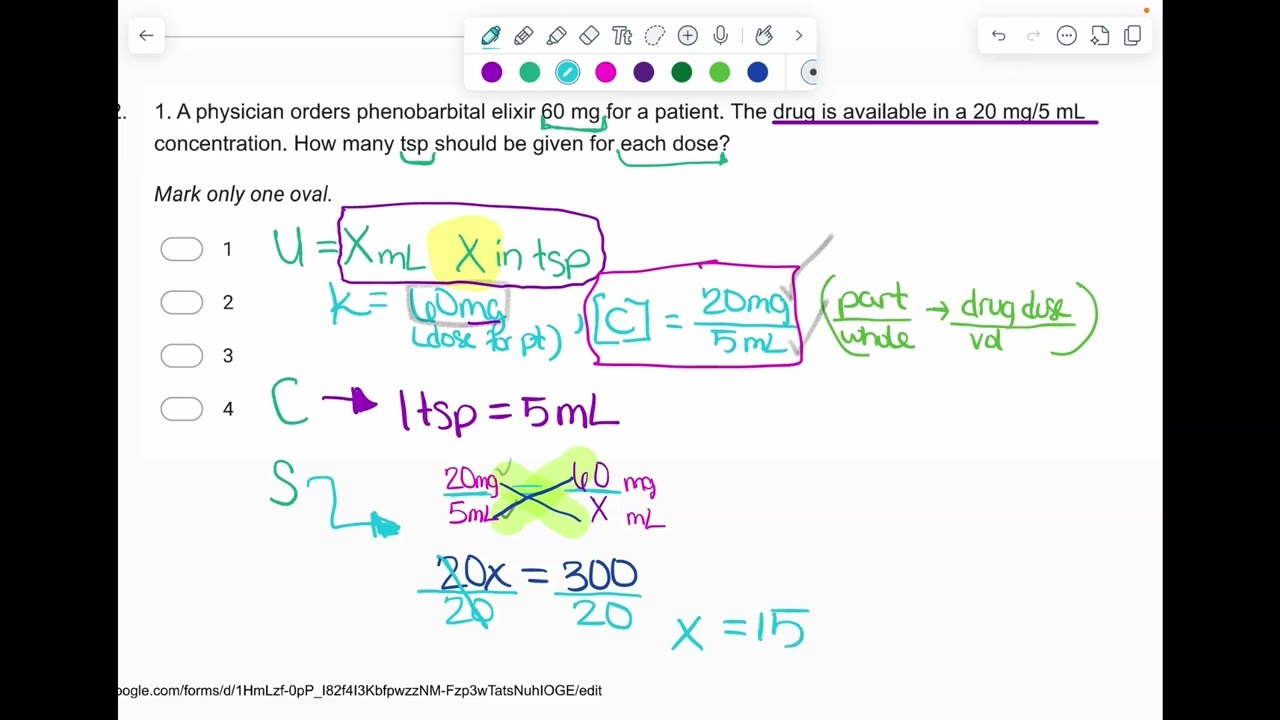 Tt
2. 1. A physician orders phenobarbital elixir 60 mg for a patient. The drug is available in a 20 mg/5 mL
concentration. How many tsp should be given for each dose?
Mark only one oval.
1 U = X mL X in tsp
2 K = 60mg , [C] = 20mg/5mL (part/whole → drug dose/vol)
(dose for pt)
3
4 C → 1tsp = 5mL
S 20mg/5mL = 60 mg/X mL
20x/20 = 300/20
x = 15
oogle.com/forms/d/1HmLzf-0pP_I82f4I3KbfpwzzNM-Fzp3wTatsNuhIOGE/edit